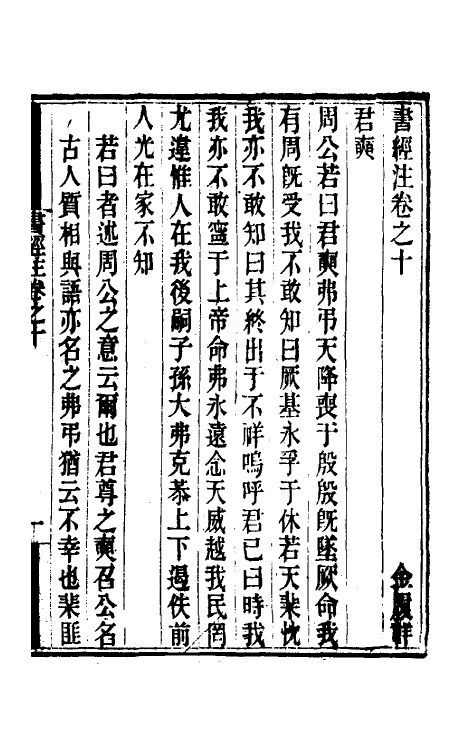 書經注卷之十
金履祥
君奭
周公若曰君奭弗弔天降喪于殷殷旣墜厥命我
有周旣受我不敢知曰厥基永孚于休若天棐忱
我亦不敢知曰其終出于不祥嗚呼君已曰時我
我亦不敢寧于上帝命弗永遠念天威越我民罔
尤違惟人在我後嗣子孫大弗克恭上下遏佚前
人光在家不知
若曰者述周公之意云爾也君尊之奭召公名
古人質相與語亦名之弗弔猶云不幸也棐匪
書經注卷之十
一